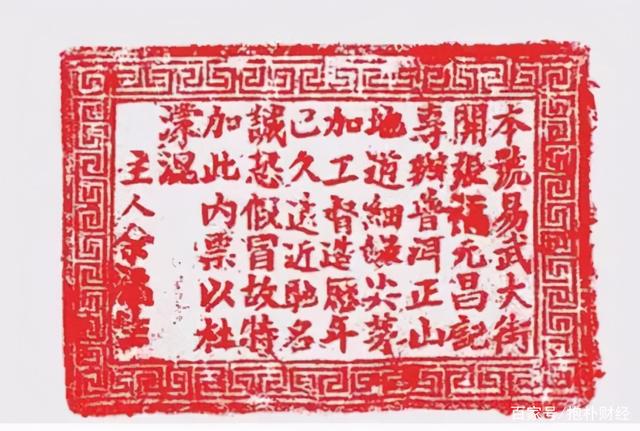 本號易武大街
開張福元昌記
專辦普洱正山
地道細嫩尖芽
加工督造歷年
已久遠近馳名
誠恐假冒故特
加此内票以杜
濛混
主人余福生
百家号/抱朴财经